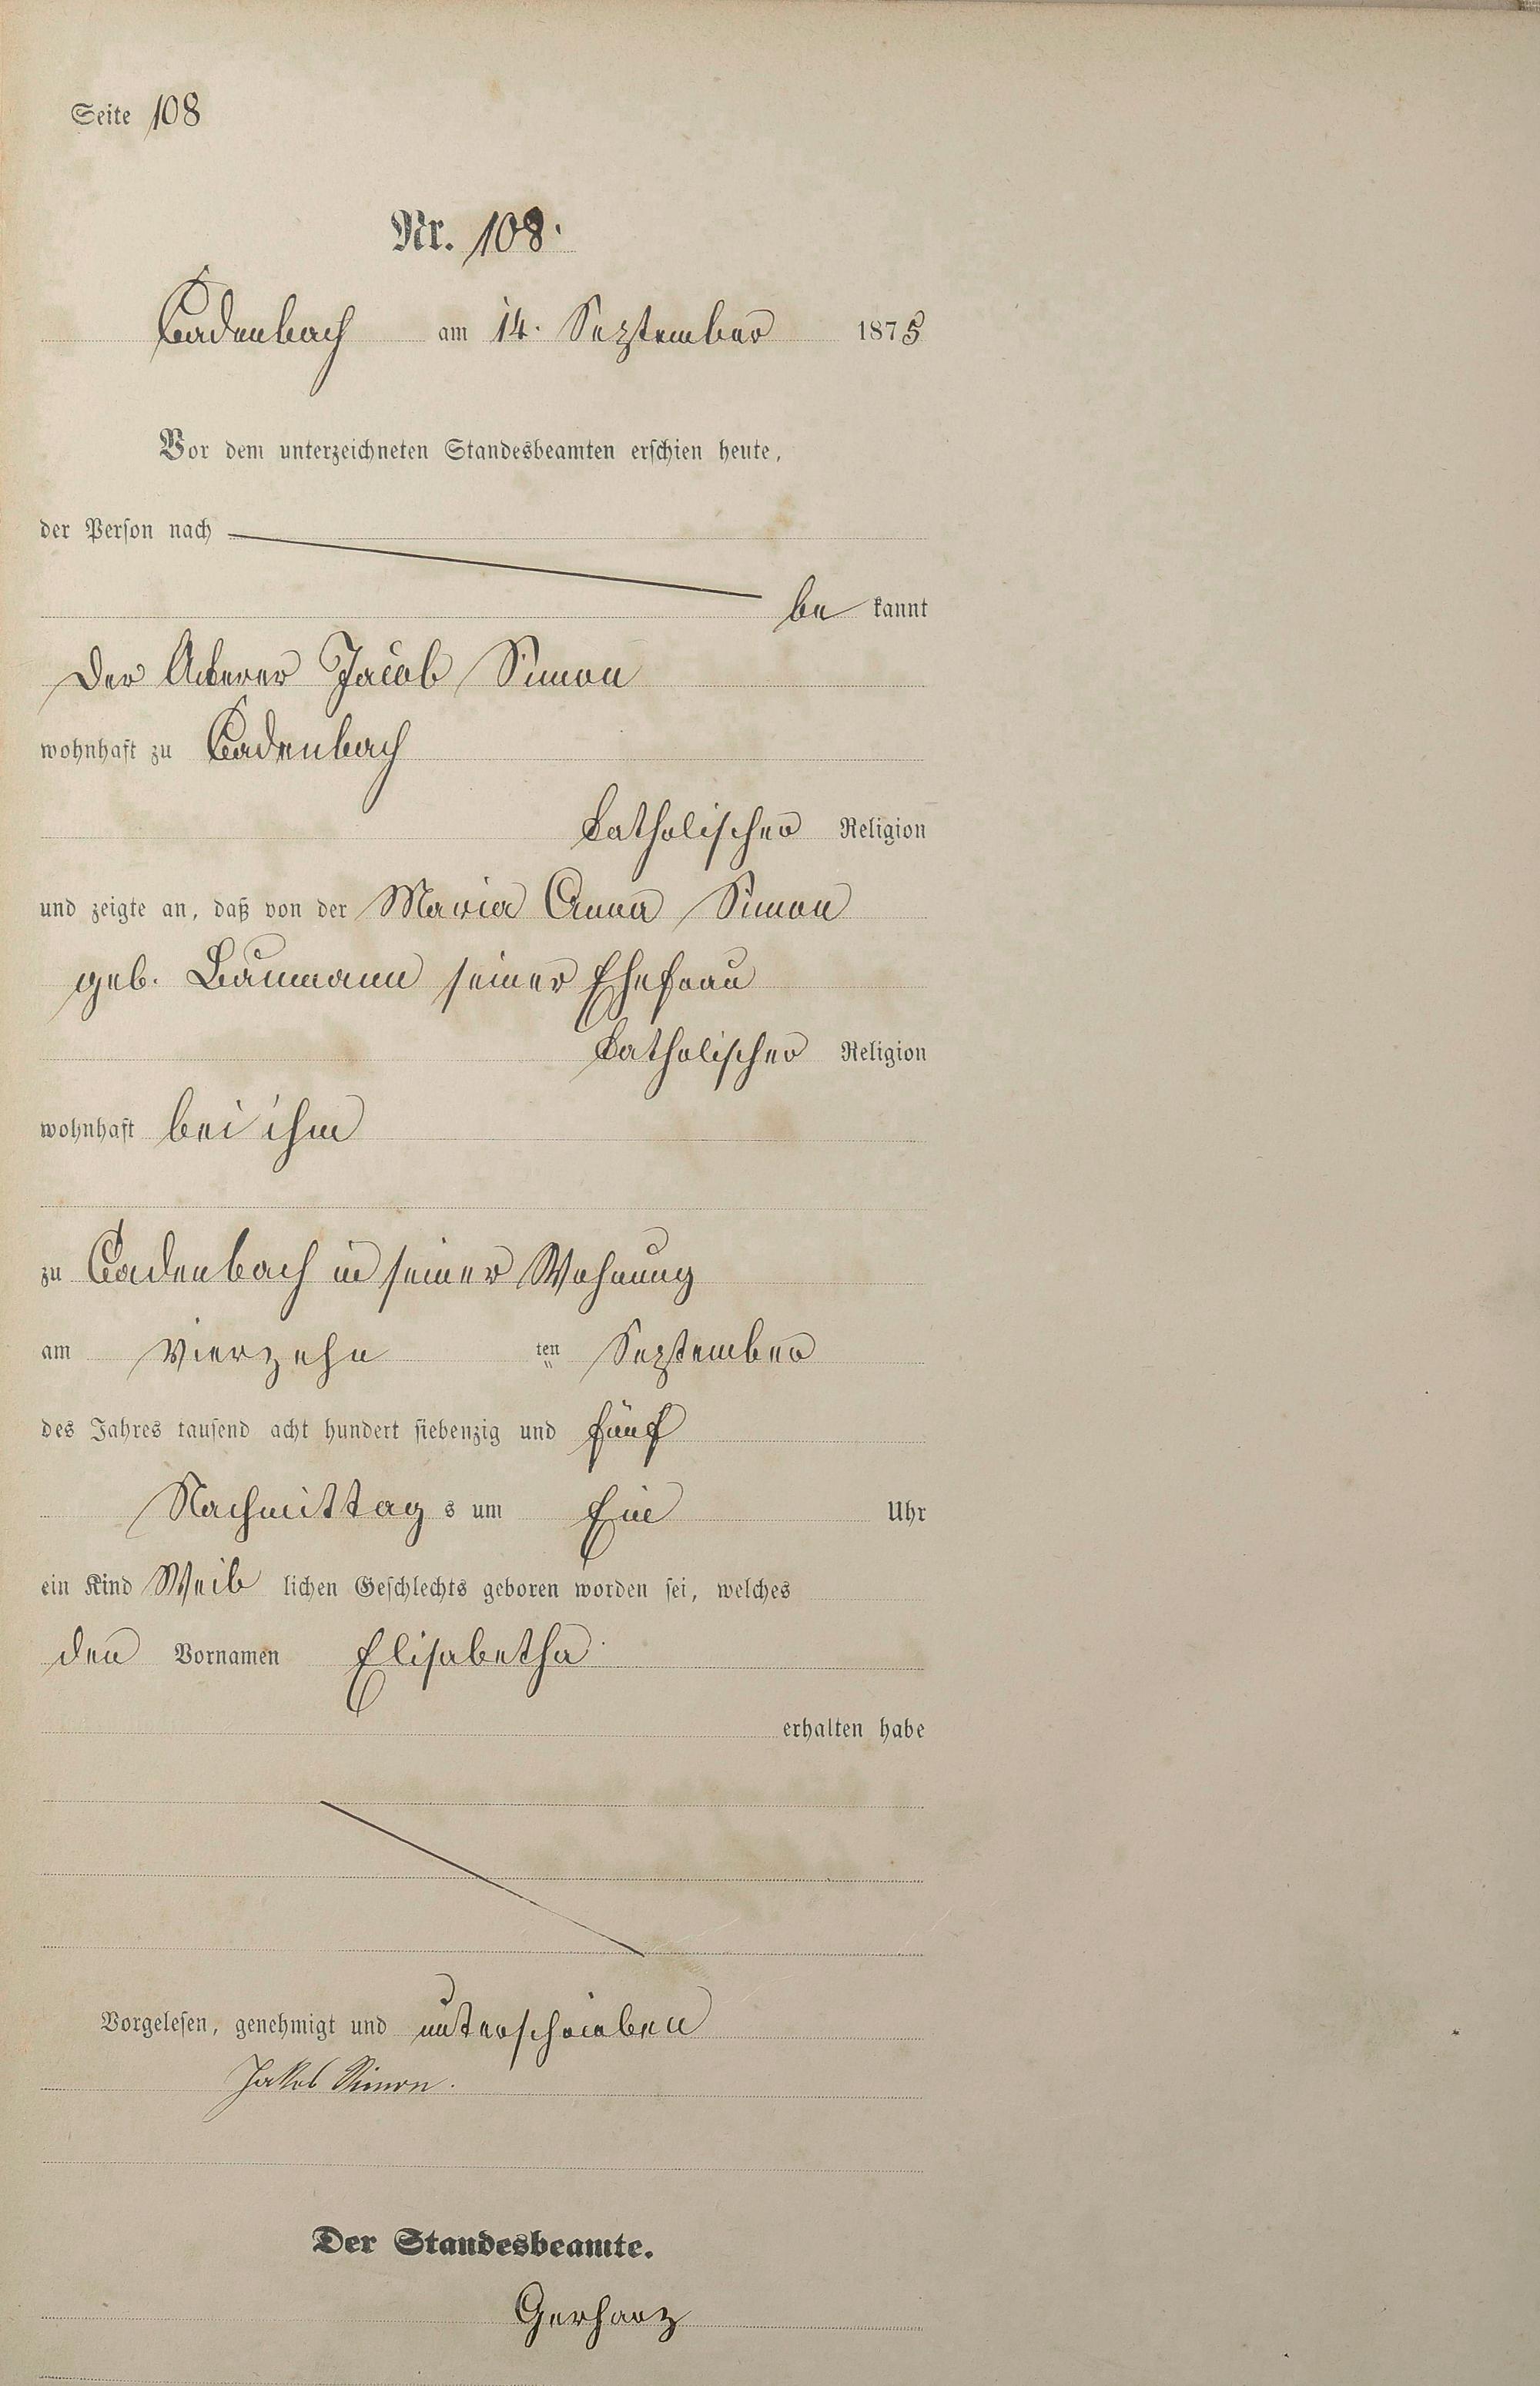 Seite 108
Nr. 108.
Cadenbach am 14. September 1875
Vor dem unterzeichneten Standesbeamten erschien heute,
der Person nach
be kannt
Der Ackerer Jacob Simon
wohnhaft zu Cadenbach
katholischer Religion
und zeigte an, daß von der Maria Anna Simon
geb. Baumann seiner Ehefrau
katholischer Religion
wohnhaft bei ihm
zu Cadenbach in seiner Wohnung
am vierzehn ten September
des Jahres tausend acht hundert siebenzig und fünf
Nachmittag s um Ein Uhr
ein Kind Weib lichen Geschlechts geboren worden sei, welches
den Vornamen Elisabetha
erhalten habe
Vorgelesen, genehmigt und unterschrieben
Jakob Simon.
Der Standesbeamte.
Gerharz